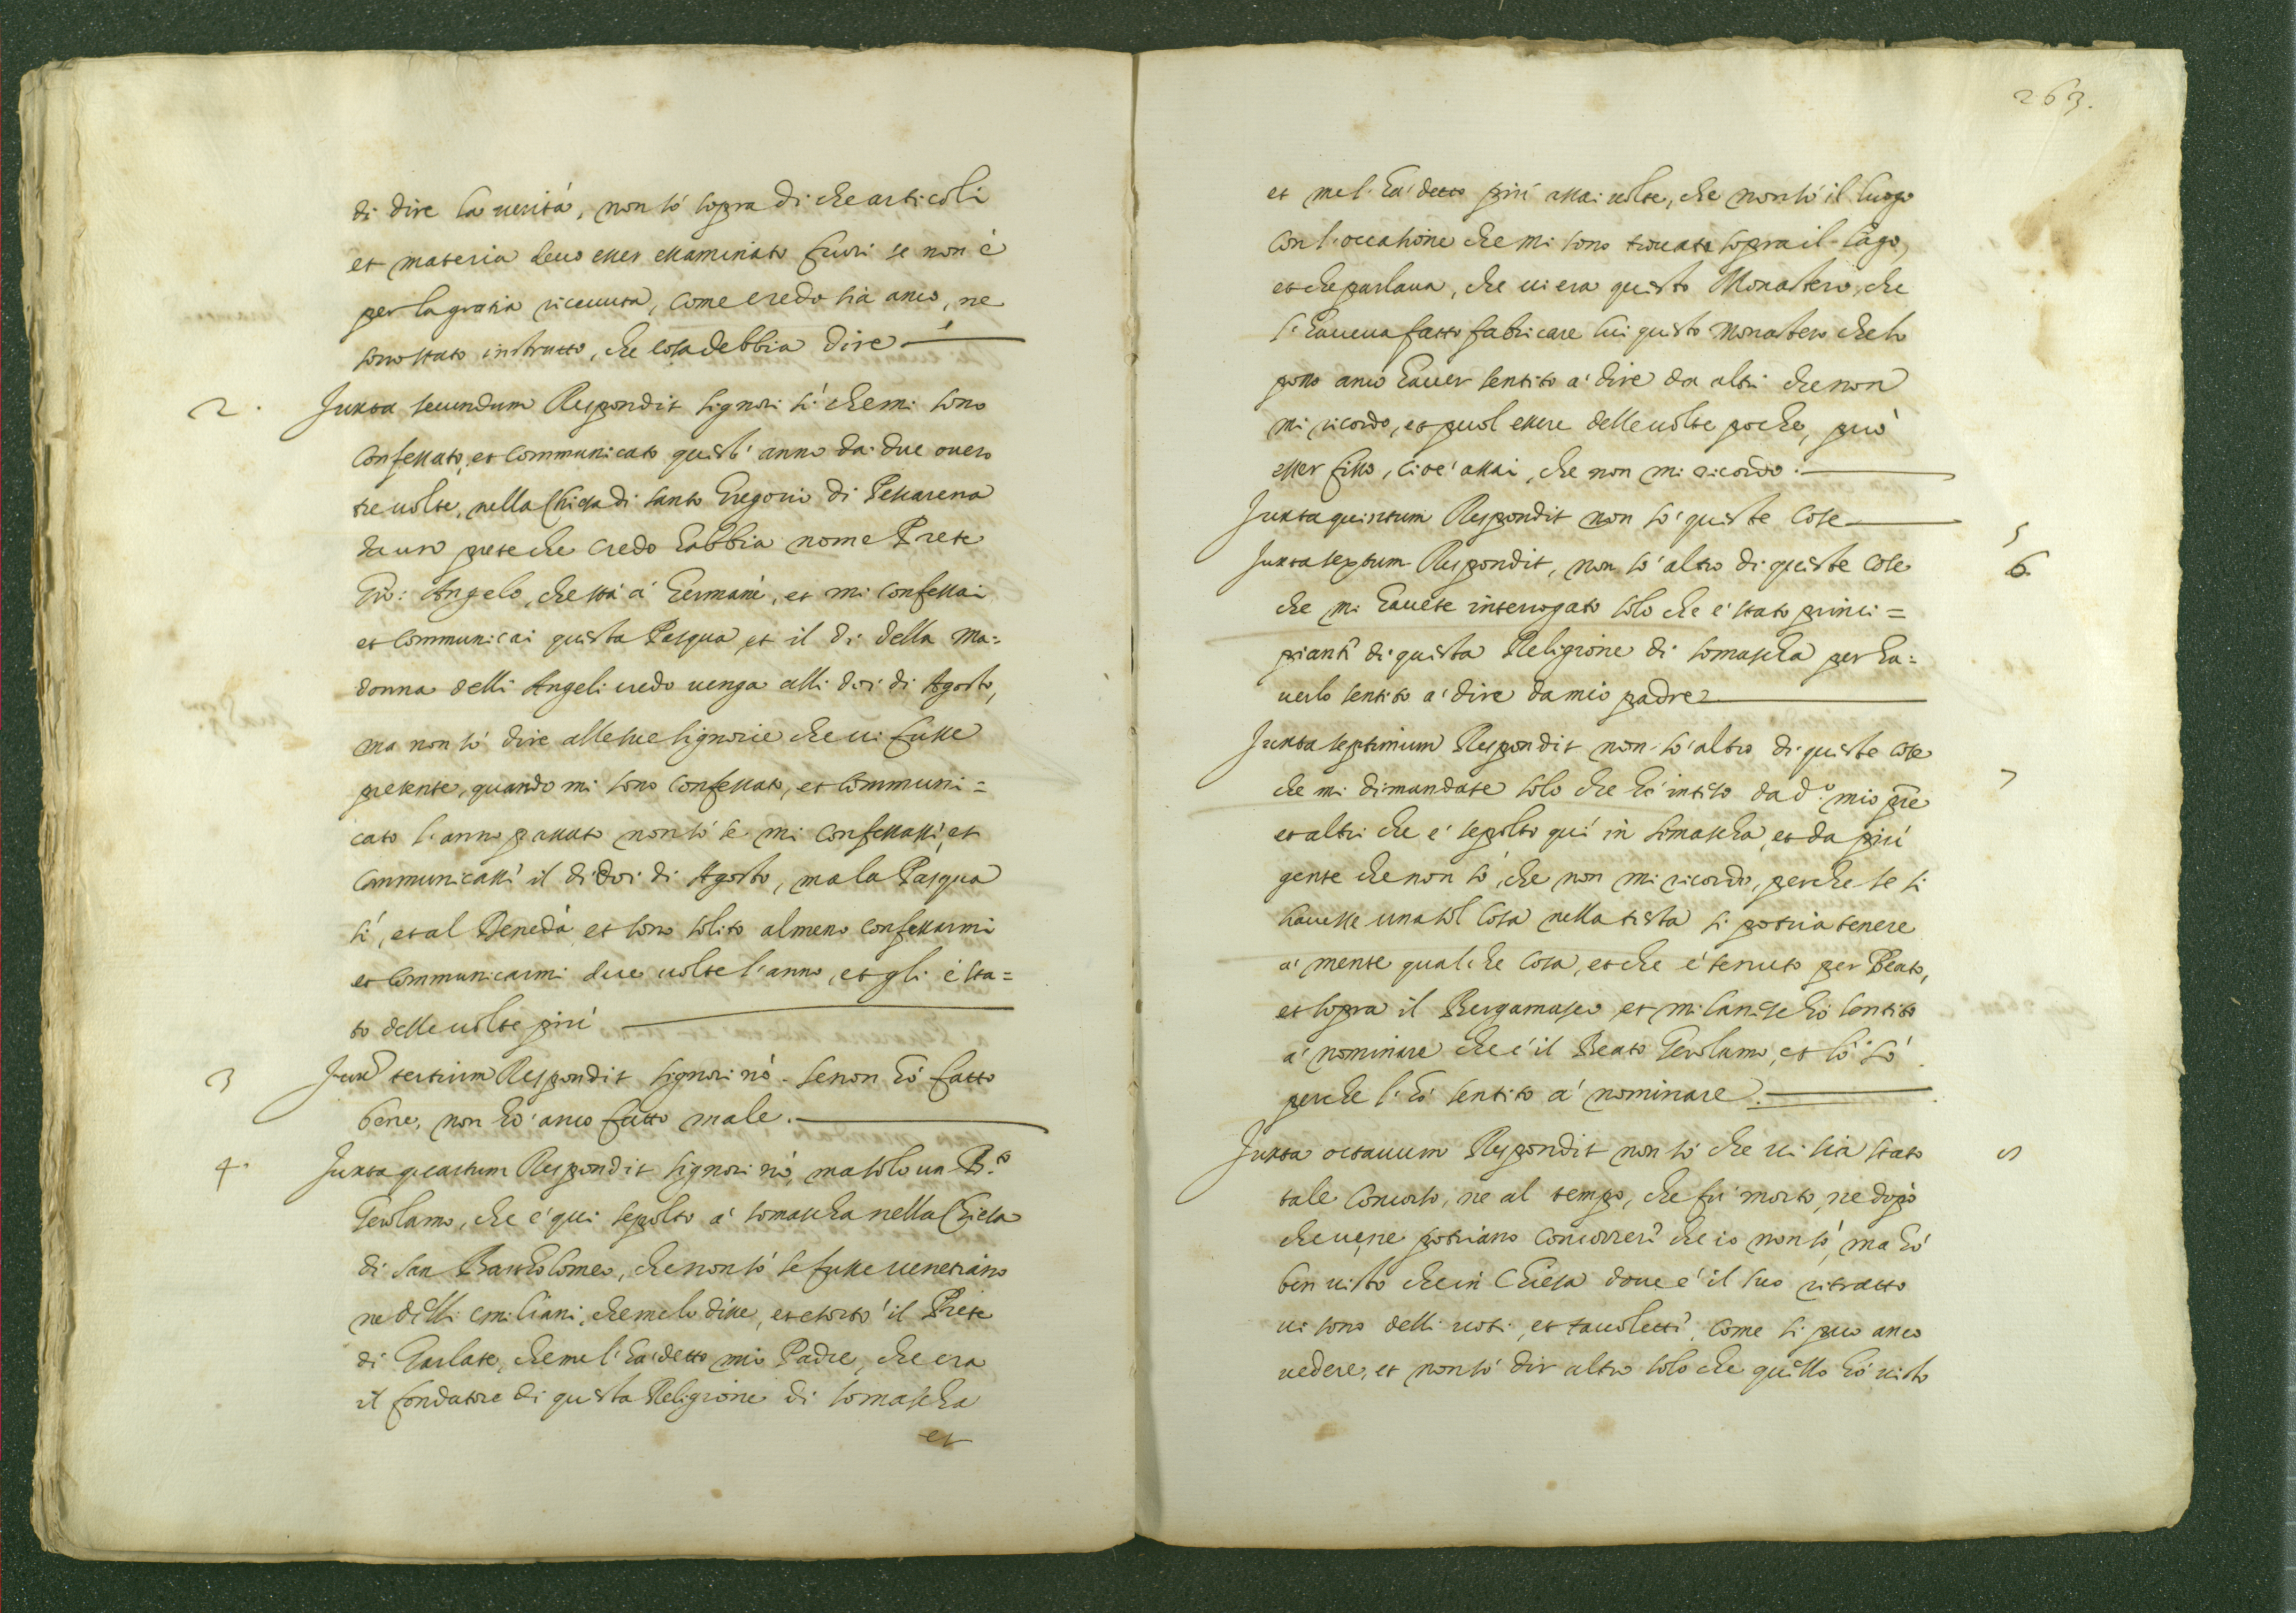 di dire la uerità, non sò sopra di che articoli
et materia deuo esser essaminato fuori se non è
per la gratia riceuuta, come credo sia anco, ne
sono stato instrutto, che cosa debbia dire
2. Juxta secundum Respondit signori sì che mi sono
confessato, et communicato quest'anno da due ouero
tre uolte, nella Chiesa di santo Gregorio di
da un prete che credo habbia nome Prete
Gio: Angelo, che stà à, et mi confessai
et communicai questa Pasqua et il dì della Ma=
donna delli Angeli credo uenga alli doi di Agosto,
ma non sò dire alle sue signorie che ui fusse
presente, quando mi sono confessato, et communi=
cato l'anno passato non sò se mi confessassi, et
communicassi il dì doi di Agosto, ma la Pasqua
sì, et al, et sono solito almeno confessarmi
et communicarmi due uolte l'anno, et gli è sta=
to delle uolte più
3 Juxa tertium Respondit signori nò se non hò fatto
bene, non hò anco fatto male.
4. Juxta quartum Respondit signori nò, ma solo un B.to
Gerolamo, che è qui sepolto à Somascha nella Chiesa
di San Bartholomeo, che non sò se fusse uenetiano
ne delli emiliani, che me lo disse, et il Prete
di Garlate, che me l'hà detto mio Padre, che era
il fondatore di questa Religione di Somascha
et
263.
et me l'hà detto più assai uolte, che non sò il luogo
con l'occasione che mi sono trouato sopra il lago,
et che parlaua, che ui era questo Monastero, che
l'haueua fatto fabricare lui questo Monastero che lo
posso anco hauer sentito à dire da altri che non
mi ricordo, et puol essere delle uolte poche, può
esser, cioè assai, che non mi ricordo.
Juxta quintum Respondit non sò queste cose 5
Juxta sextum Respondit, non sò altro di queste cose 6.
che mi hauete interrogato solo che è stato princi=
piante di questa Religione di Somascha per ha=
uerlo sentito à dire da mio padre
Juxta septimum Respondit non sò altro di queste cose
che mi dimandate solo che hò inteso da d.o mio pre 7
et altri che è sepolto qui in Somascha, et da più
gente che non sò, che non mi ricordo, perche se si
hauesse una sol cosa nella testa si potria tenere
à mente qualche cosa, et che è tenuto per Beato,
et sopra il Bergamasco et milanese hò sentito
à nominare che è il Beato Gerolamo, et lò sò
perche l'hò sentito à nominare.
Juxta octauum Respondit non sò che ui sia stato 8
tale concorso, ne al tempo, che fù morto, ne dopò
che ue ne potriano concorrere che io non sò, ma hò
ben uisto che in Chiesa doue è il suo ritratto
ui sono delli uoti, et tauolette, come si può anco
uedere, et non sò dir altro solo che quello hò uisto